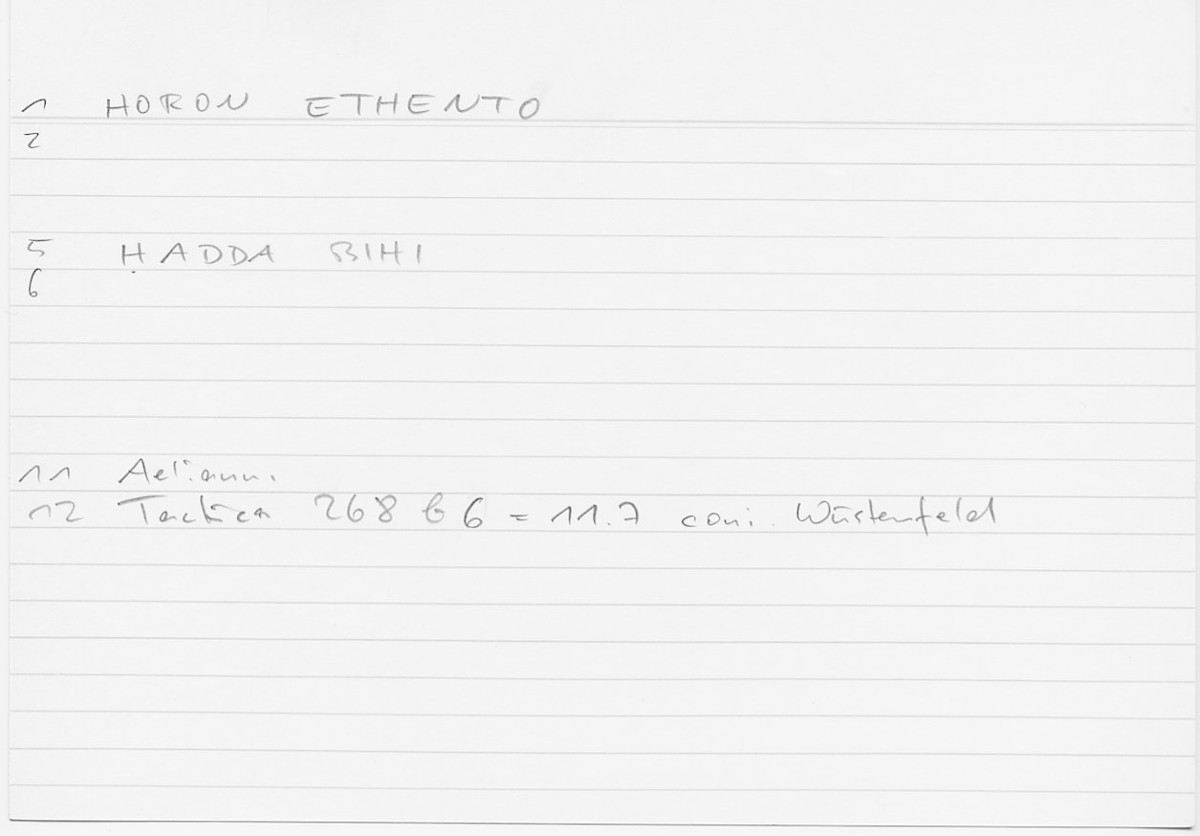 1 HORON ETHENTO
2
5 ḤADDA BIHI
6
11 Aeliann.
12 Tactica 268 b 6 = 11.7 coni. Wüstenfeld